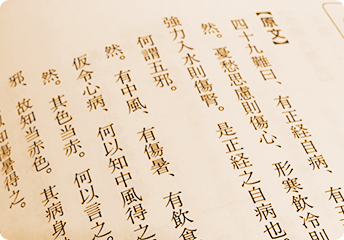 【原文】
四十九難曰、有正経自病、有五
然。憂愁思慮則傷心、形寒飲冷則
強力入水則傷腎。是正経之自病也
何謂五邪。
然。有中風、有傷暑、有飲食
仮令心病、何以知中風得之
然。其色当赤。何以言之。
邪、故知当赤色。其病身
傷暑得之。